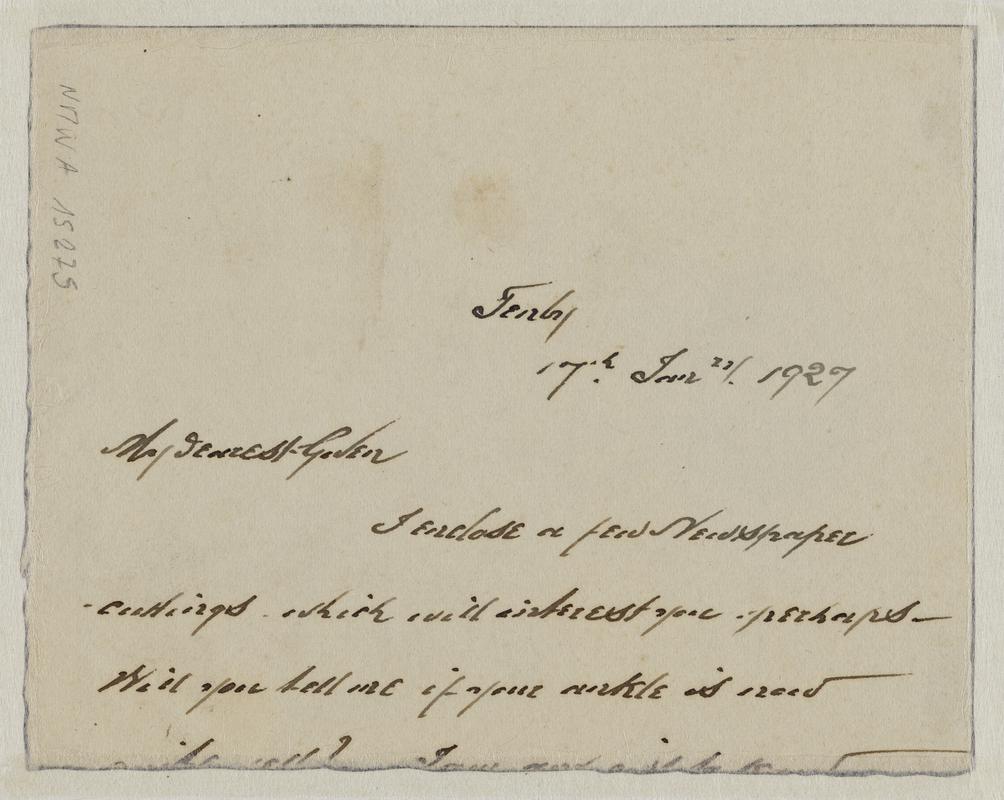 NMW A 15 275
Tenby
17th Janry. 1927
My dearest Gwen
I enclose a few Newspaper
cuttings which will interest you perhaps—
Will you tell me if your ankle is now
quite well? I am